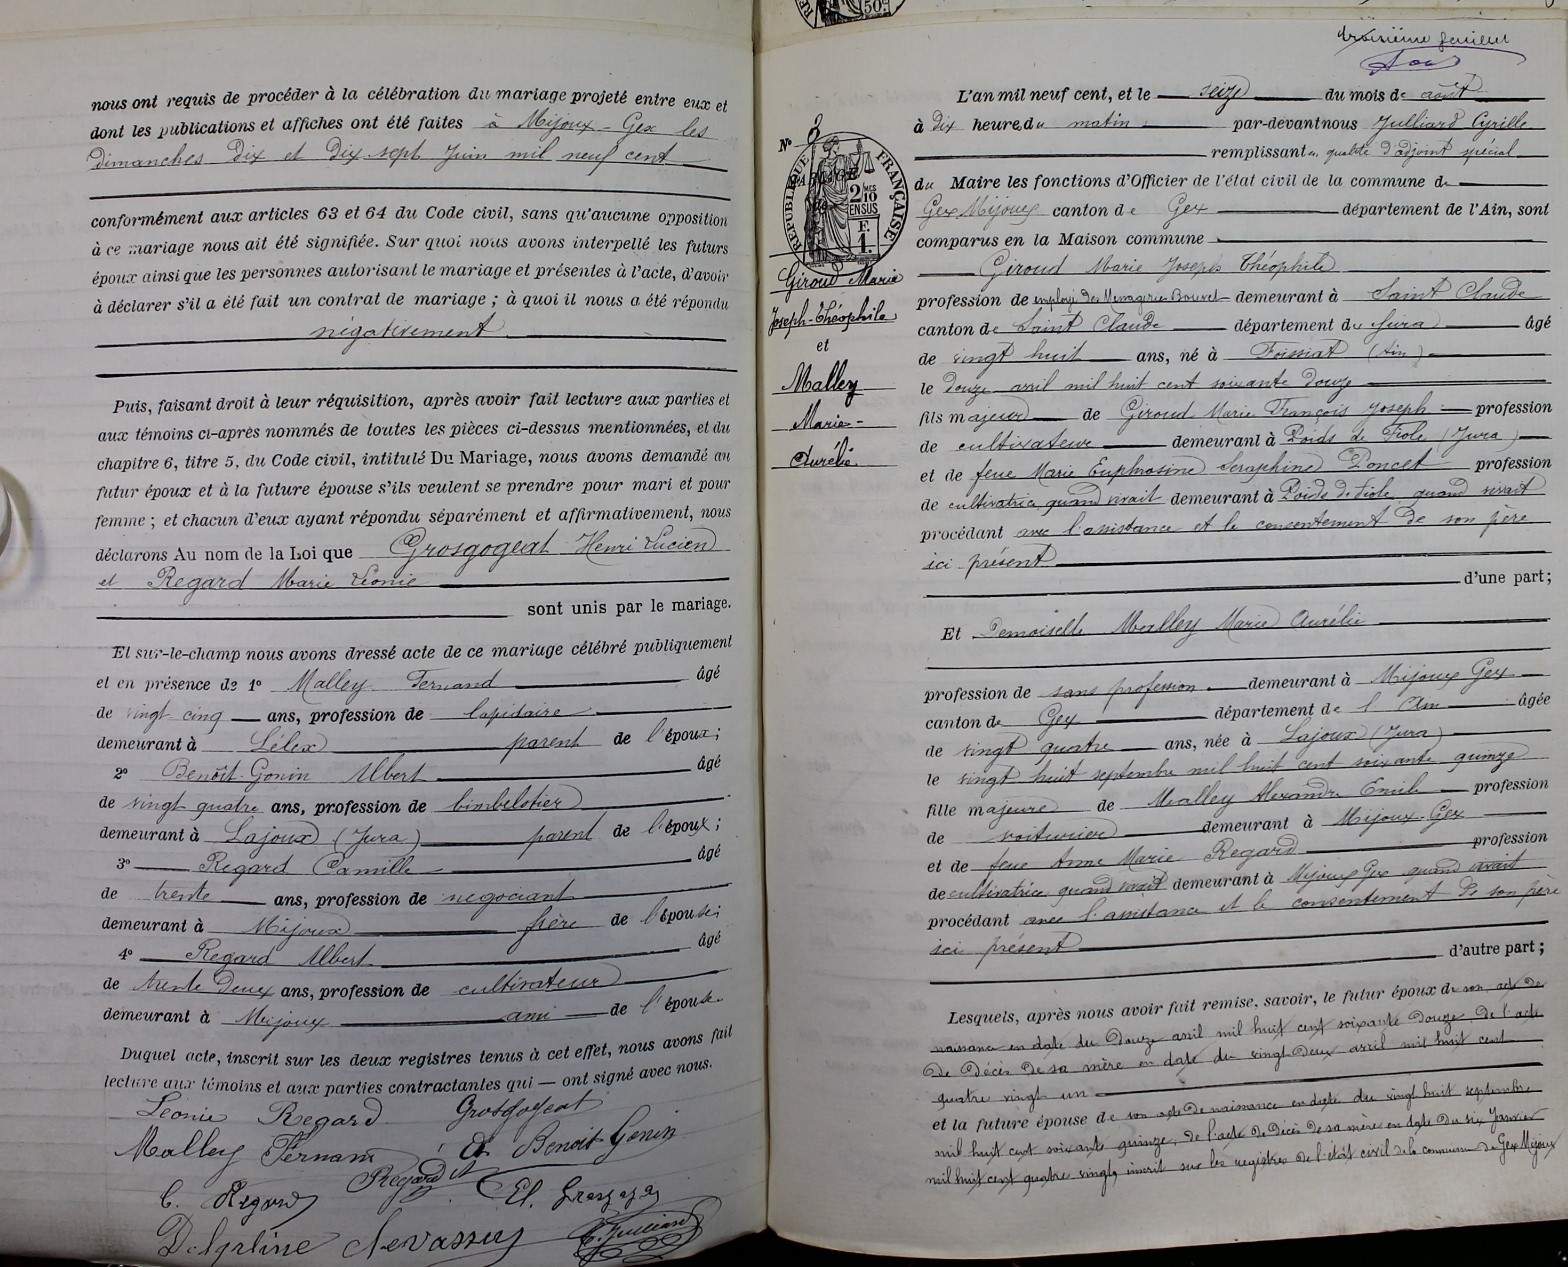 nous ont requis de procéder à la célébration du mariage projeté entre eux et
dont les publications et affiches ont été faites à Mijoux-Gex les
Dimanches Dix et Dix sept Juin mil neuf cent
conformément aux articles 63 et 64 du Code civil, sans qu'aucune opposition
à ce mariage nous ait été signifiée. Sur quoi nous avons interpellé les futurs
époux ainsi que les personnes autorisant le mariage et présentes à l'acte, d'avoir
à déclarer s'il a été fait un contrat de mariage ; à quoi il nous a été répondu
négativement
Puis, faisant droit à leur réquisition, après avoir fait lecture aux parties et
aux témoins ci-après nommés de toutes les pièces ci-dessus mentionnées, et du
chapitre 6, titre 5, du Code civil, intitulé Du Mariage, nous avons demandé au
futur époux et à la future épouse s'ils veulent se prendre pour mari et pour
femme ; et chacun d'eux ayant répondu séparément et affirmativement, nous
déclarons Au nom de la Loi que Grosgogeat Henri Lucien
et Regard Marie Léonie
sont unis par le mariage.
Et sur-le-champ nous avons dressé acte de ce mariage célébré publiquement
et en présence de 1° Malley Fernand âgé
de vingt cinq ans, profession de lapidaire
demeurant à Lélex parent de l'époux;
2° Benoît-Gonin Albert âgé
de vingt quatre ans, profession de bimbelotier
demeurant à Lajoux (Jura) parent de l'époux;
3° Regard Camille âgé
de trente ans, profession de négociant
demeurant à Mijoux frère de l'épouse;
4° Regard Albert âgé
de trente deux ans, profession de cultivateur
demeurant à Mijoux ami de l'épouse
Duquel acte, inscrit sur les deux registres tenus à cet effet, nous avons fait
lecture aux témoins et aux parties contractantes qui — ont signé avec nous.
Léonie Regard Grosgogeat
Malley Fernand A Benoit-Gonin
Regard
C. Regard El. Grosgogeat
Delphine Levassey C. Julliard
troisième feuillet
L'an mil neuf cent, et le seize du mois de août
N° 8
à dix heures du matin par-devant nous Julliard Cyrille
remplissant en qualité d'adjoint spécial
du Maire les fonctions d'Officier de l'état civil de la commune de
Gex Mijoux canton de Gex département de l'Ain, sont
comparus en la Maison commune
RÉPUBLIQUE FRANÇAISE
2 MES 10 EN SUS
F. 1.
Giroud Marie
Joseph-Théophile
et
Malley
Marie-
Aurélie
Giroud Marie Joseph Théophile
profession de employé des Messageries Bouvet demeurant à Saint Claude
canton de Saint Claude département du Jura âgé
de vingt huit ans, né à Foissiat (Ain)
le douze avril mil huit cent soixante douze
fils majeur de Giroud Marie François Joseph profession
de cultivateur demeurant à Poids de Fiole (Jura)
et de feue Marie Euphrosine Séraphine Doncet profession
de cultivatrice quand vivait demeurant à Poids de Fiole quand vivait
procédant avec l'assistance et le consentement de son père
ici présent
d'une part;
Et Demoiselle Malley Marie Aurélie
profession de sans profession demeurant à Mijoux Gex
canton de Gex département de l'Ain âgée
de vingt quatre ans, née à Lajoux (Jura)
le vingt huit septembre mil huit cent soixante quinze
fille majeure de Malley Alexandre Emile profession
de voiturier demeurant à Mijoux-Gex
et de feue Anne Marie Regard profession
de cultivatrice quand vivait demeurant à Mijoux Gex quand vivait
procédant avec l'assistance et le consentement de son père
ici présent
d'autre part ;
Lesquels, après nous avoir fait remise, savoir, le futur époux de son acte de
naissance en date du Douze avril mil huit cent soixante Douze, de l'acte
de Décès de sa mère en date du vingt Deux avril mil huit cent
quatre vingt un
et la future épouse de son acte de naissance en date du vingt huit septembre
mil huit cent soixante quinze, de l'acte de Décès de sa mère en date du six Janvier
mil huit cent quatre vingts, inscrit sur les registres de l'état civil de la commune de Gex Mijoux